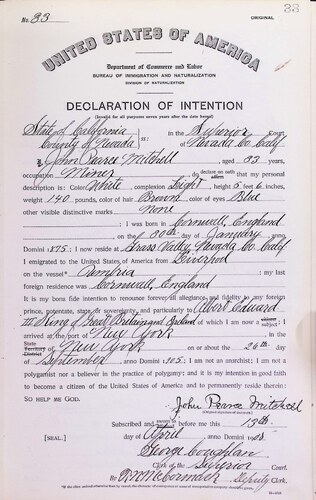 No. 33
ORIGINAL
33
UNITED STATES OF AMERICA
Department of Commerce and Labor
BUREAU OF IMMIGRATION AND NATURALIZATION
DIVISION OF NATURALIZATION
DECLARATION OF INTENTION
(Invalid for all purposes seven years after the date hereof)
State of California
County of Nevada ss: In the Superior Court
of Nevada Co. Calif
I, John Pearce Mitchell, aged 33 years,
occupation Miner, do declare on oath affirm that my personal
description is: Color White, complexion Light, height 5 feet 6 inches,
weight 140 pounds, color of hair Brown, color of eyes Blue
other visible distinctive marks None
I was born in Cornwall, England
on the 30th day of January, anno
Domini 1875; I now reside at Grass Valley, Nevada Co. Calif
I emigrated to the United States of America from Liverpool
on the vessel Umbria; my last
foreign residence was Cornwall, England
It is my bona fide intention to renounce forever all allegiance and fidelity to any foreign
prince, potentate, state, or sovereignty, and particularly to Albert Edward
King of Great Britain and Ireland, of which I am now a subject; I
arrived at the port of New York, in the
State Territory District of New York on or about the 26th day
of September, anno Domini 1905; I am not an anarchist; I am not a
polygamist nor a believer in the practice of polygamy; and it is my intention in good faith
to become a citizen of the United States of America and to permanently reside therein:
SO HELP ME GOD.
John Pearce Mitchell
Subscribed and sworn to before me this 13th
[SEAL.] day of April, anno Domini 1908.
George Coughlan
Clerk of the Superior Court.
By R. N. McCormack, Deputy Clerk.